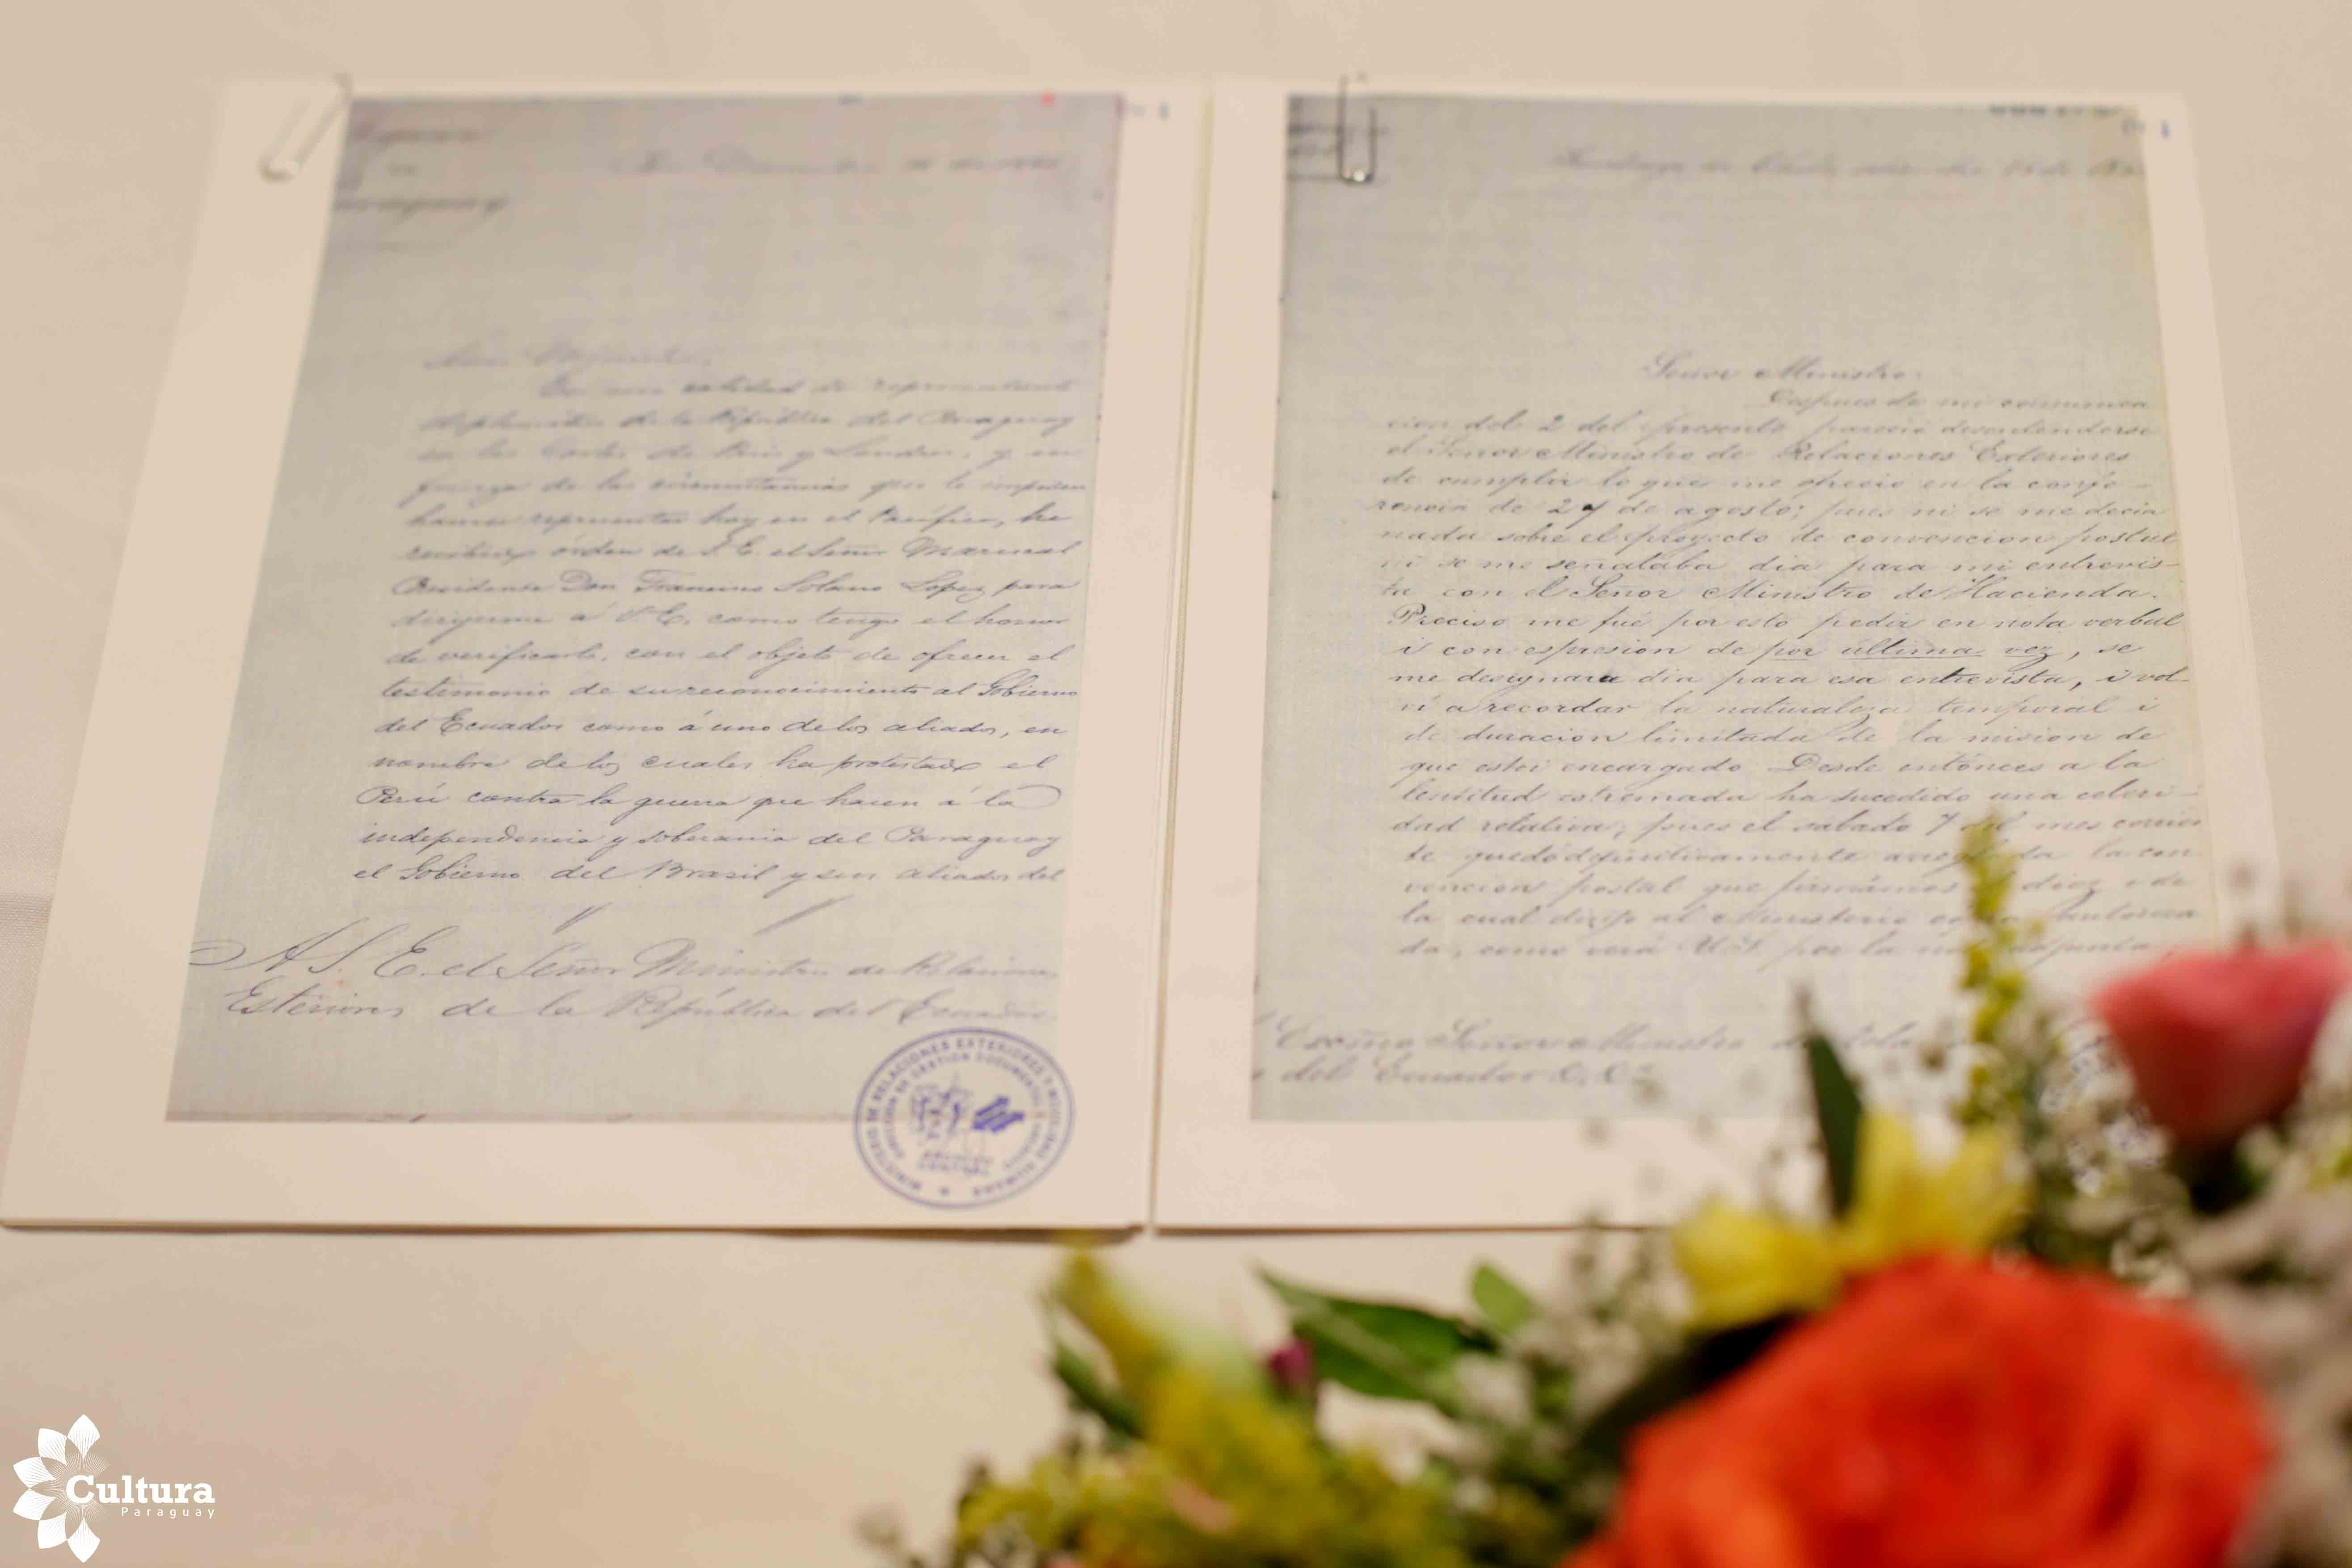 Señor Ministro:
En mi calidad de representante
diplomático de la República del Paraguay
en las Cortes de Paris y Londres, y en
de las circunstancias que le impiden
hacerse representar hoy en el Pacífico, he
recibido órden de S. E. el Señor Mariscal
Presidente Don Francisco Solano Lopez para
dirijirme á V. E. como tengo el honor
de verificarlo, con el objeto de ofrecer el
testimonio de su reconocimiento al Gobierno
del Ecuador como á uno de los aliados, en
nombre de los cuales ha protestado el
Perú contra la guerra que hacen á la
independencia y soberania del Paraguay
el Gobierno del Brasil y sus aliados del
A S. E. el Señor Ministro de Relaciones
Esteriores de la República del Ecuador
MINISTERIO DE RELACIONES EXTERIORES Y
DIRECCIÓN DE GESTIÓN DOCUMENTAL
ARCHIVO
Santiago de Chile,
Señor Ministro:
Despues de mi comunica
cion del 2 del presente pareció desentenderse
el Señor Ministro de Relaciones Exteriores
de cumplir lo que me ofreció en la confe-
rencia de 27 de agosto; pues ni se me decia
nada sobre el proyecto de convencion postal
ni se me señalaba dia para mi entrevis-
ta con el Señor Ministro de Hacienda.
Preciso me fué por esto pedir en nota verbal
i con espresion de por última vez, se
me designara dia para esa entrevista, i vol-
ví a recordar la naturaleza temporal i
de duracion limitada de la mision de
que estoi encargado. Desde entónces a la
lentitud estremada ha sucedido una celeri-
dad relativa; pues el sábado 7 del mes corrien
te quedó definitivamente arreglada la con
vencion postal que firmámos el diez i de
la cual dirijo al Ministerio copia autoriza
da, como verá US. por la nota adjunta
Exmo. Señor Ministro de Rela
del Ecuador &, &.
Cultura
Paraguay